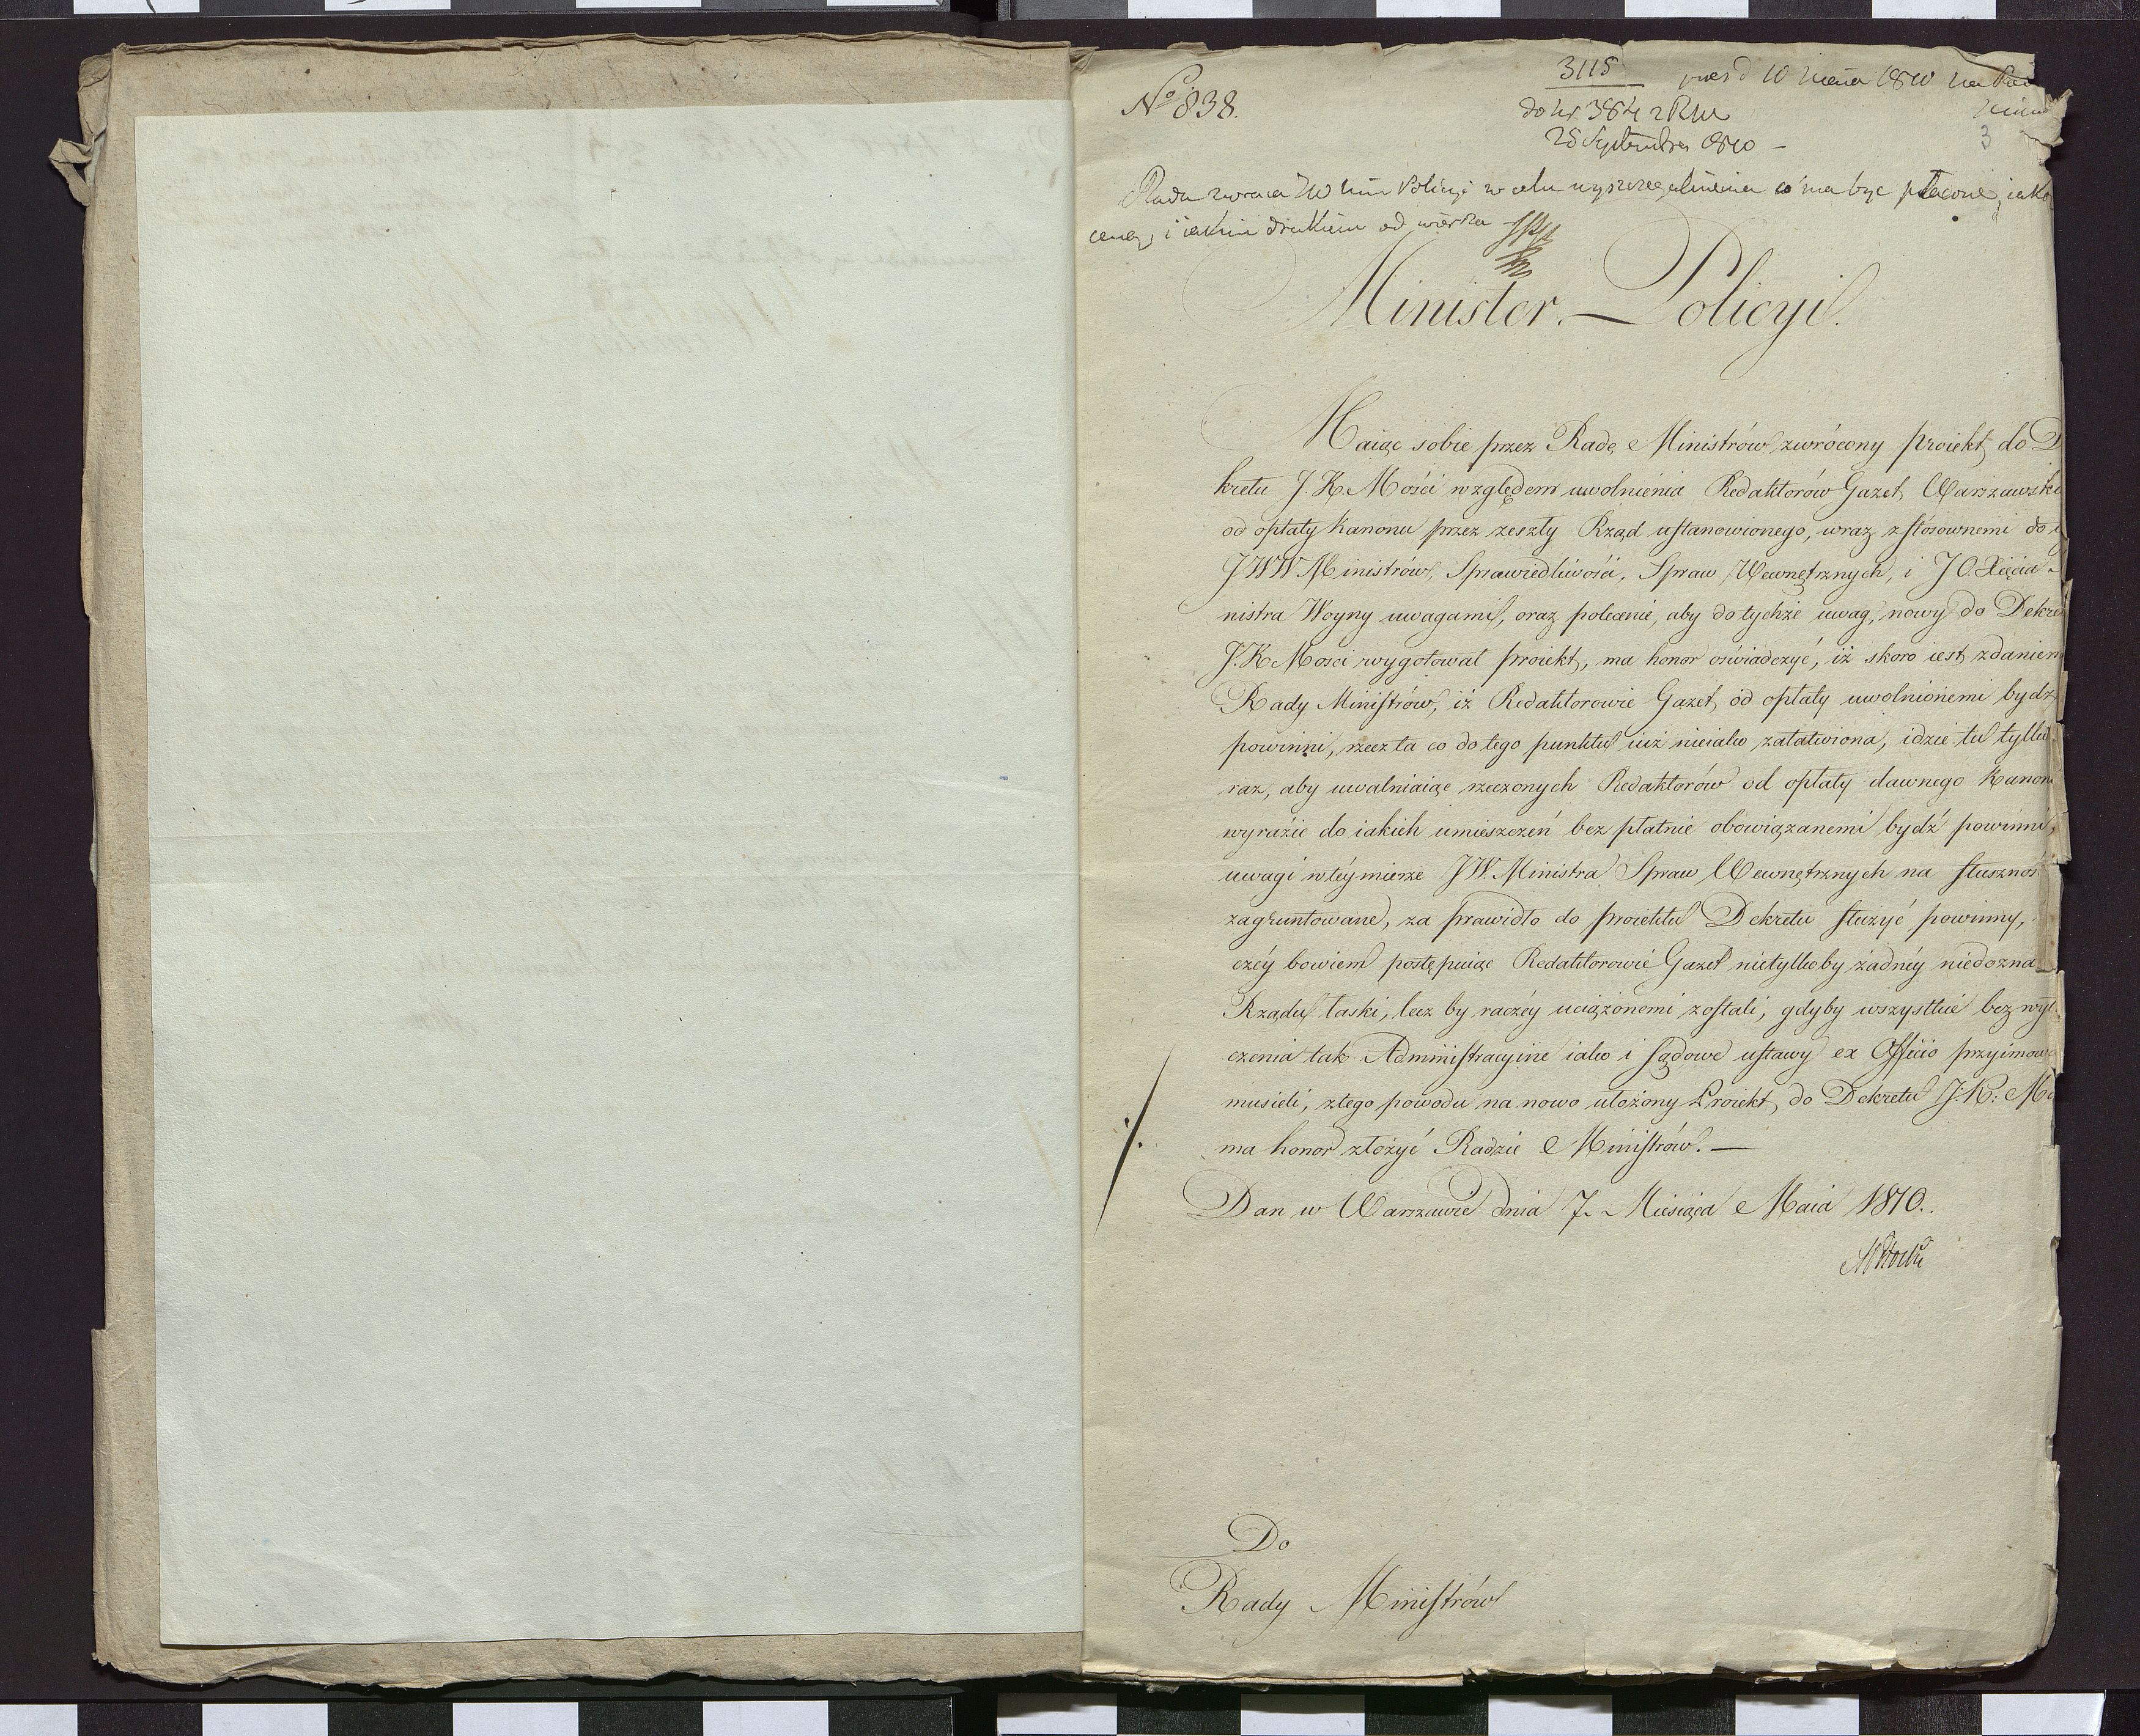 No 838.
3115
pres d 10 Maia 1810 na Ra
do Nr 384 z RM
3
25 Septembra 1810 –
Rada zwraca JW Min Policyi w celu wyszczegulnienia co ma byc płacone, iako
ceną, i iakim drukiem od wiersza
Minister. — Policyi.
Maiąc sobie przez Radę Ministrów zwrócony proiekt, do D
kretu J. K. Mości względem uwolnienia Redaktorów Gazet, Warszawski
od opłaty Kanonu przez zeszły Rząd ustanowionego, wraz z stosownemi do
JWW Ministrów, Sprawiedliwości, Spraw Wewnętrznych, i JO. Xięcia
nistra Woyny uwagami, oraz polecenie, aby do tychże uwag, nowy do Dekre
J. K Mości wygotował proiekt, ma honor oświadczyć, iż skoro iest, zdaniem
Rady Ministrów, iż Redaktorowie Gazet, od opłaty uwolnionemi bydź
powinni, rzecz ta co do tego punktu iuż nieiako załatwiona, idzie tu tylko
raz, aby uwalniaiąc rzeczonych Redaktorów od opłaty dawnego Kanon
wyrazić do iakich umieszczeń bez płatnie obowiązanemi bydź powinni,
uwagi w téy mierze JW. Ministra Spraw Wewnętrznych na słusznoś
zagruntowane, za prawidło do proiektu Dekretu służyć powinny,
czéy bowiem postępuiąc Redaktorowie Gazet nietylko by żadnéy niedozna
Rządu łaski, lecz by raczéy uciążonemi zostali, gdyby wszystkie bez wył
czenia tak Administracyine iako i sądowe ustawy ex Officio przyimow
musieli, z tego powodu na nowo ułożony Proiekt, do Dekretu J: K: Mo
ma honor złożyć Radzie Ministrów. —
Dan w Warszawie dnia 7. Miesiąca Maia 1810..
Do
Rady Ministrów